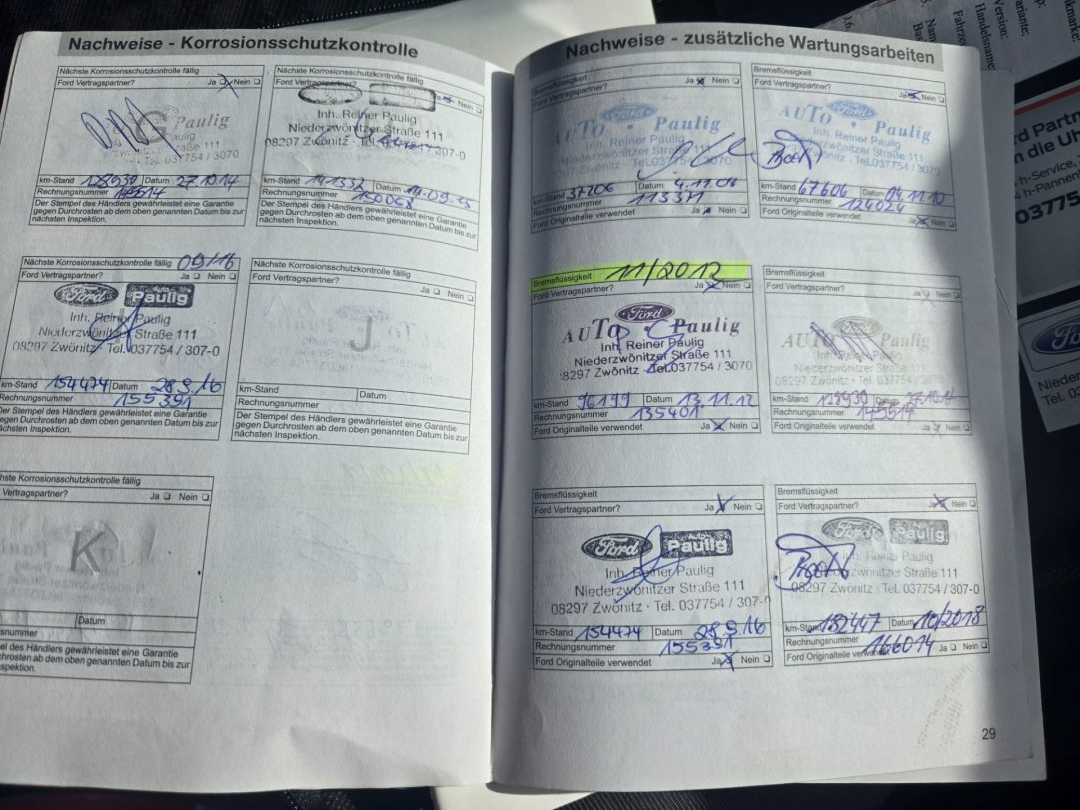 Nachweise - Korrosionsschutzkontrolle
Nächste Korrosionsschutzkontrolle fällig
Ford Vertragspartner? Ja Nein
Paulig
Tel. 037754 / 3070
km-Stand 128930 Datum 27.10.14
Rechnungsnummer 145514
Der Stempel des Händlers gewährleistet eine Garantie
gegen Durchrosten ab dem oben genannten Datum bis zur
nächsten Inspektion.
Nächste Korrosionsschutzkontrolle fällig
Ford Vertragspartner? Ja Nein
Inh. Reiner Paulig
Niederzwönitzer Straße 111
08297 Zwönitz · Tel. 037754 / 307-0
km-Stand Datum
Rechnungsnummer 150068
Der Stempel des Händlers gewährleistet eine Garantie
gegen Durchrosten ab dem oben genannten Datum bis zur
nächsten Inspektion.
Nächste Korrosionsschutzkontrolle fällig 09/16
Ford Vertragspartner? Ja Nein
Ford Paulig
Inh. Reiner Paulig
Niederzwönitzer Straße 111
08297 Zwönitz · Tel. 037754 / 307-0
km-Stand 154474 Datum 28.9.16
Rechnungsnummer 155391
Der Stempel des Händlers gewährleistet eine Garantie
gegen Durchrosten ab dem oben genannten Datum bis zur
nächsten Inspektion.
Nächste Korrosionsschutzkontrolle fällig
Ford Vertragspartner?
Ja Nein
km-Stand Datum
Rechnungsnummer
Der Stempel des Händlers gewährleistet eine Garantie
gegen Durchrosten ab dem oben genannten Datum bis zur
nächsten Inspektion.
hste Korrosionsschutzkontrolle fällig
Vertragspartner? Ja Nein
K
Datum
snummer
el des Händlers gewährleistet eine Garantie
chrosten ab dem oben genannten Datum bis zur
spektion.
Nachweise - zusätzliche Wartungsarbeiten
Bremsflüssigkeit
Ford Vertragspartner? Ja Nein
Ford
AUTO · Paulig
Inh. Reiner Paulig
Niederzwönitzer Straße 111
km-Stand 37206 Datum 4.11.08
Rechnungsnummer 113371
Ford Originalteile verwendet Ja Nein
Bremsflüssigkeit
Ford Vertragspartner? Ja Nein
Ford
AUTO · Paulig
Inh. Reiner Paulig
Straße 111
Tel.037754 / 3070
km-Stand 67606 Datum 04.11.10
Rechnungsnummer 124024
Ford Originalteile verwendet Ja Nein
Bremsflüssigkeit 11/2012
Ford Vertragspartner? Ja Nein
Ford
AUTO Paulig
Inh. Reiner Paulig
Niederzwönitzer Straße 111
08297 Zwönitz Tel.037754 / 3070
km-Stand 96199 Datum 13.11.12
Rechnungsnummer 135401
Ford Originalteile verwendet Ja Nein
Bremsflüssigkeit
Ford Vertragspartner? Ja
Paulig
Niederzwönitzer Straße 111
08297 Zwönitz · Tel. 037754 / 3070
km-Stand 128930 Datum 27.10.14
Rechnungsnummer 145514
Ford Originalteile verwendet Ja Nein
Bremsflüssigkeit
Ford Vertragspartner? Ja Nein
Ford Auto Paulig
Inh. Reiner Paulig
Niederzwönitzer Straße 111
08297 Zwönitz · Tel. 037754 / 307-0
km-Stand 154474 Datum 28.9.16
Rechnungsnummer 155391
Ford Originalteile verwendet Ja Nein
Bremsflüssigkeit
Ford Vertragspartner? Ja Nein
Ford Auto Paulig
Inh. Reiner Paulig
Niederzwönitzer Straße 111
08297 Zwönitz · Tel. 037754 / 307-0
km-Stand 182447 Datum 10/2018
Rechnungsnummer 166014
Ford Originalteile verwendet Ja Nein
29
Version:
Handelsname
Fahrze
rd Partn
n die Uh
h-Service,
h-Pannen
03775
Nieder
Tel. 03